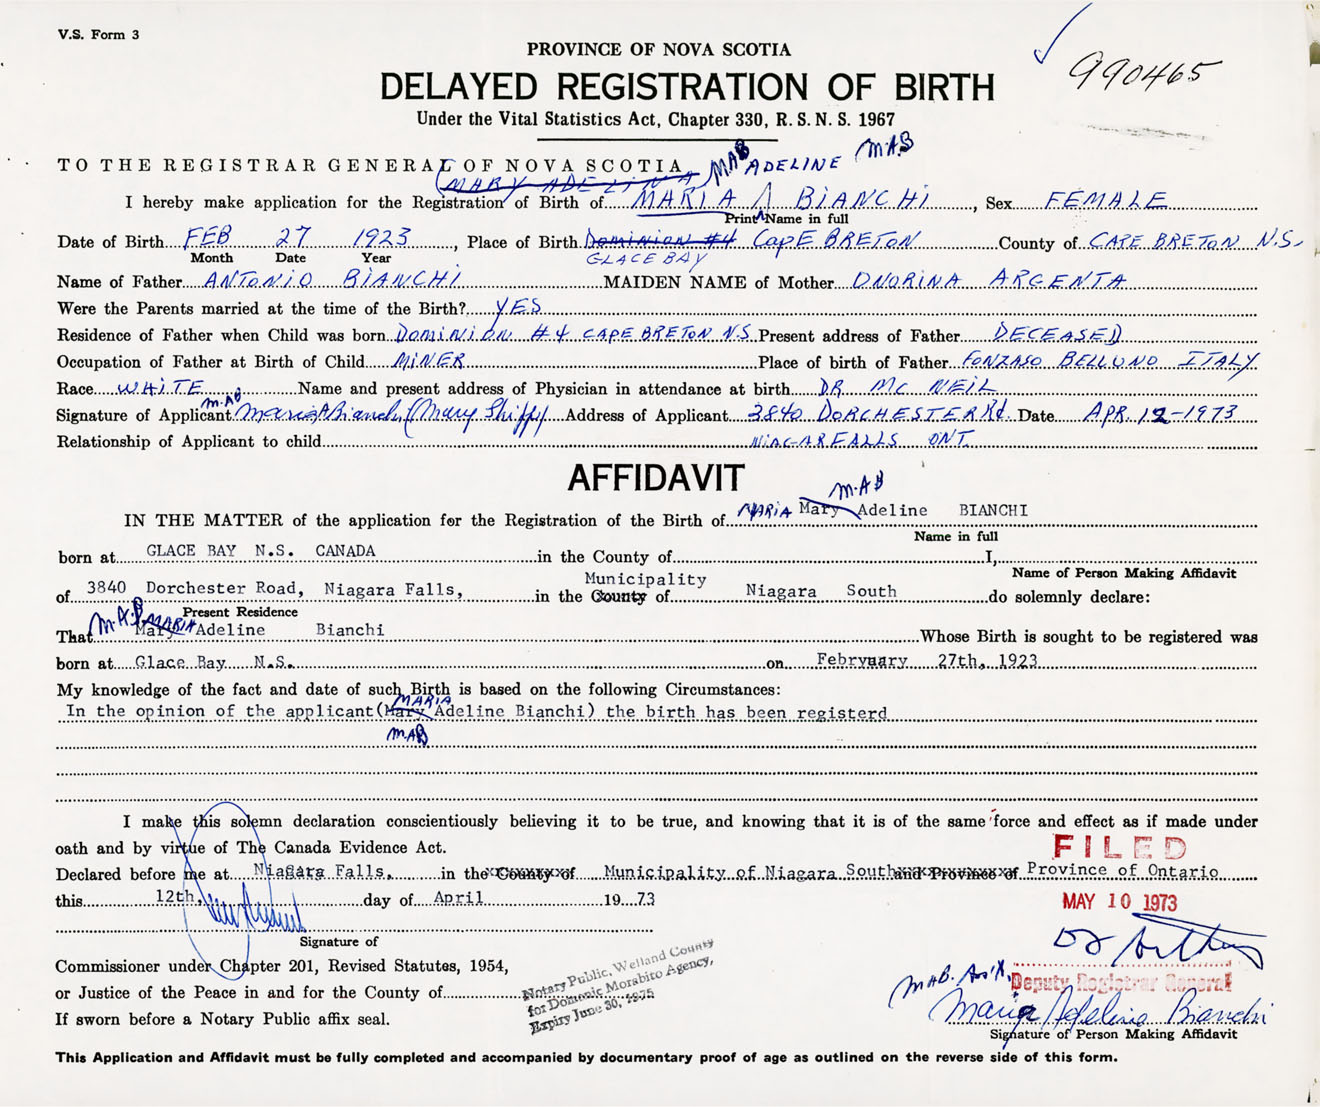 V.S. Form 3
990465
PROVINCE OF NOVA SCOTIA
DELAYED REGISTRATION OF BIRTH
Under the Vital Statistics Act, Chapter 330, R. S. N. S. 1967
TO THE REGISTRAR GENERAL OF NOVA SCOTIA
MARY ADELINA MAB ADELINE M.A.B
I hereby make application for the Registration of Birth of MARIA BIANCHI, Sex FEMALE
Print Name in full
Date of Birth FEB 27 1923, Place of Birth Dominion #4 CapE BRETON County of CAPE BRETON N.S.
Month Date Year GLACE BAY
Name of Father ANTONIO BIANCHI MAIDEN NAME of Mother ONORINA ARGENTA
Were the Parents married at the time of the Birth? YES
Residence of Father when Child was born DOMINION #4 CAPE BRETON N.S. Present address of Father DECEASED
Occupation of Father at Birth of Child MINER Place of birth of Father FONZASO BELLUNO ITALY
Race WHITE Name and present address of Physician in attendance at birth DR MC NEIL
M.AB
Signature of Applicant Maria A Bianchi (Mary Address of Applicant 3840 DORCHESTER Rd. Date APR. 12-1973
Relationship of Applicant to child NIAGARFALLS ONT.
AFFIDAVIT
M.AB
IN THE MATTER of the application for the Registration of the Birth of MARIA Mary Adeline BIANCHI
Name in full
born at GLACE BAY N.S. CANADA in the County of I,
Name of Person Making Affidavit
Municipality
of 3840 Dorchester Road, Niagara Falls, in the County of Niagara South do solemnly declare:
Present Residence
M.A.B MARIA
That Mary Adeline Bianchi Whose Birth is sought to be registered was
born at Glace Bay N.S. on February 27th, 1923
My knowledge of the fact and date of such Birth is based on the following Circumstances:
MARIA
In the opinion of the applicant(Mary Adeline Bianchi) the birth has been registerd
MAB
I make this solemn declaration conscientiously believing it to be true, and knowing that it is of the same force and effect as if made under
oath and by virtue of The Canada Evidence Act.
FILED
Declared before me at Niagara Falls, in the County of Municipality of Niagara South and Province of Province of Ontario
this 12th, day of April 19 73
MAY 10 1973
Signature of
Commissioner under Chapter 201, Revised Statutes, 1954,
or Justice of the Peace in and for the County of
If sworn before a Notary Public affix seal.
Notary Public, Welland County
for Domenic Morabito Agency,
Expiry June 30, 1975
MAB.
Deputy Registrar General
Maria Adeline Bianchi
Signature of Person Making Affidavit
This Application and Affidavit must be fully completed and accompanied by documentary proof of age as outlined on the reverse side of this form.